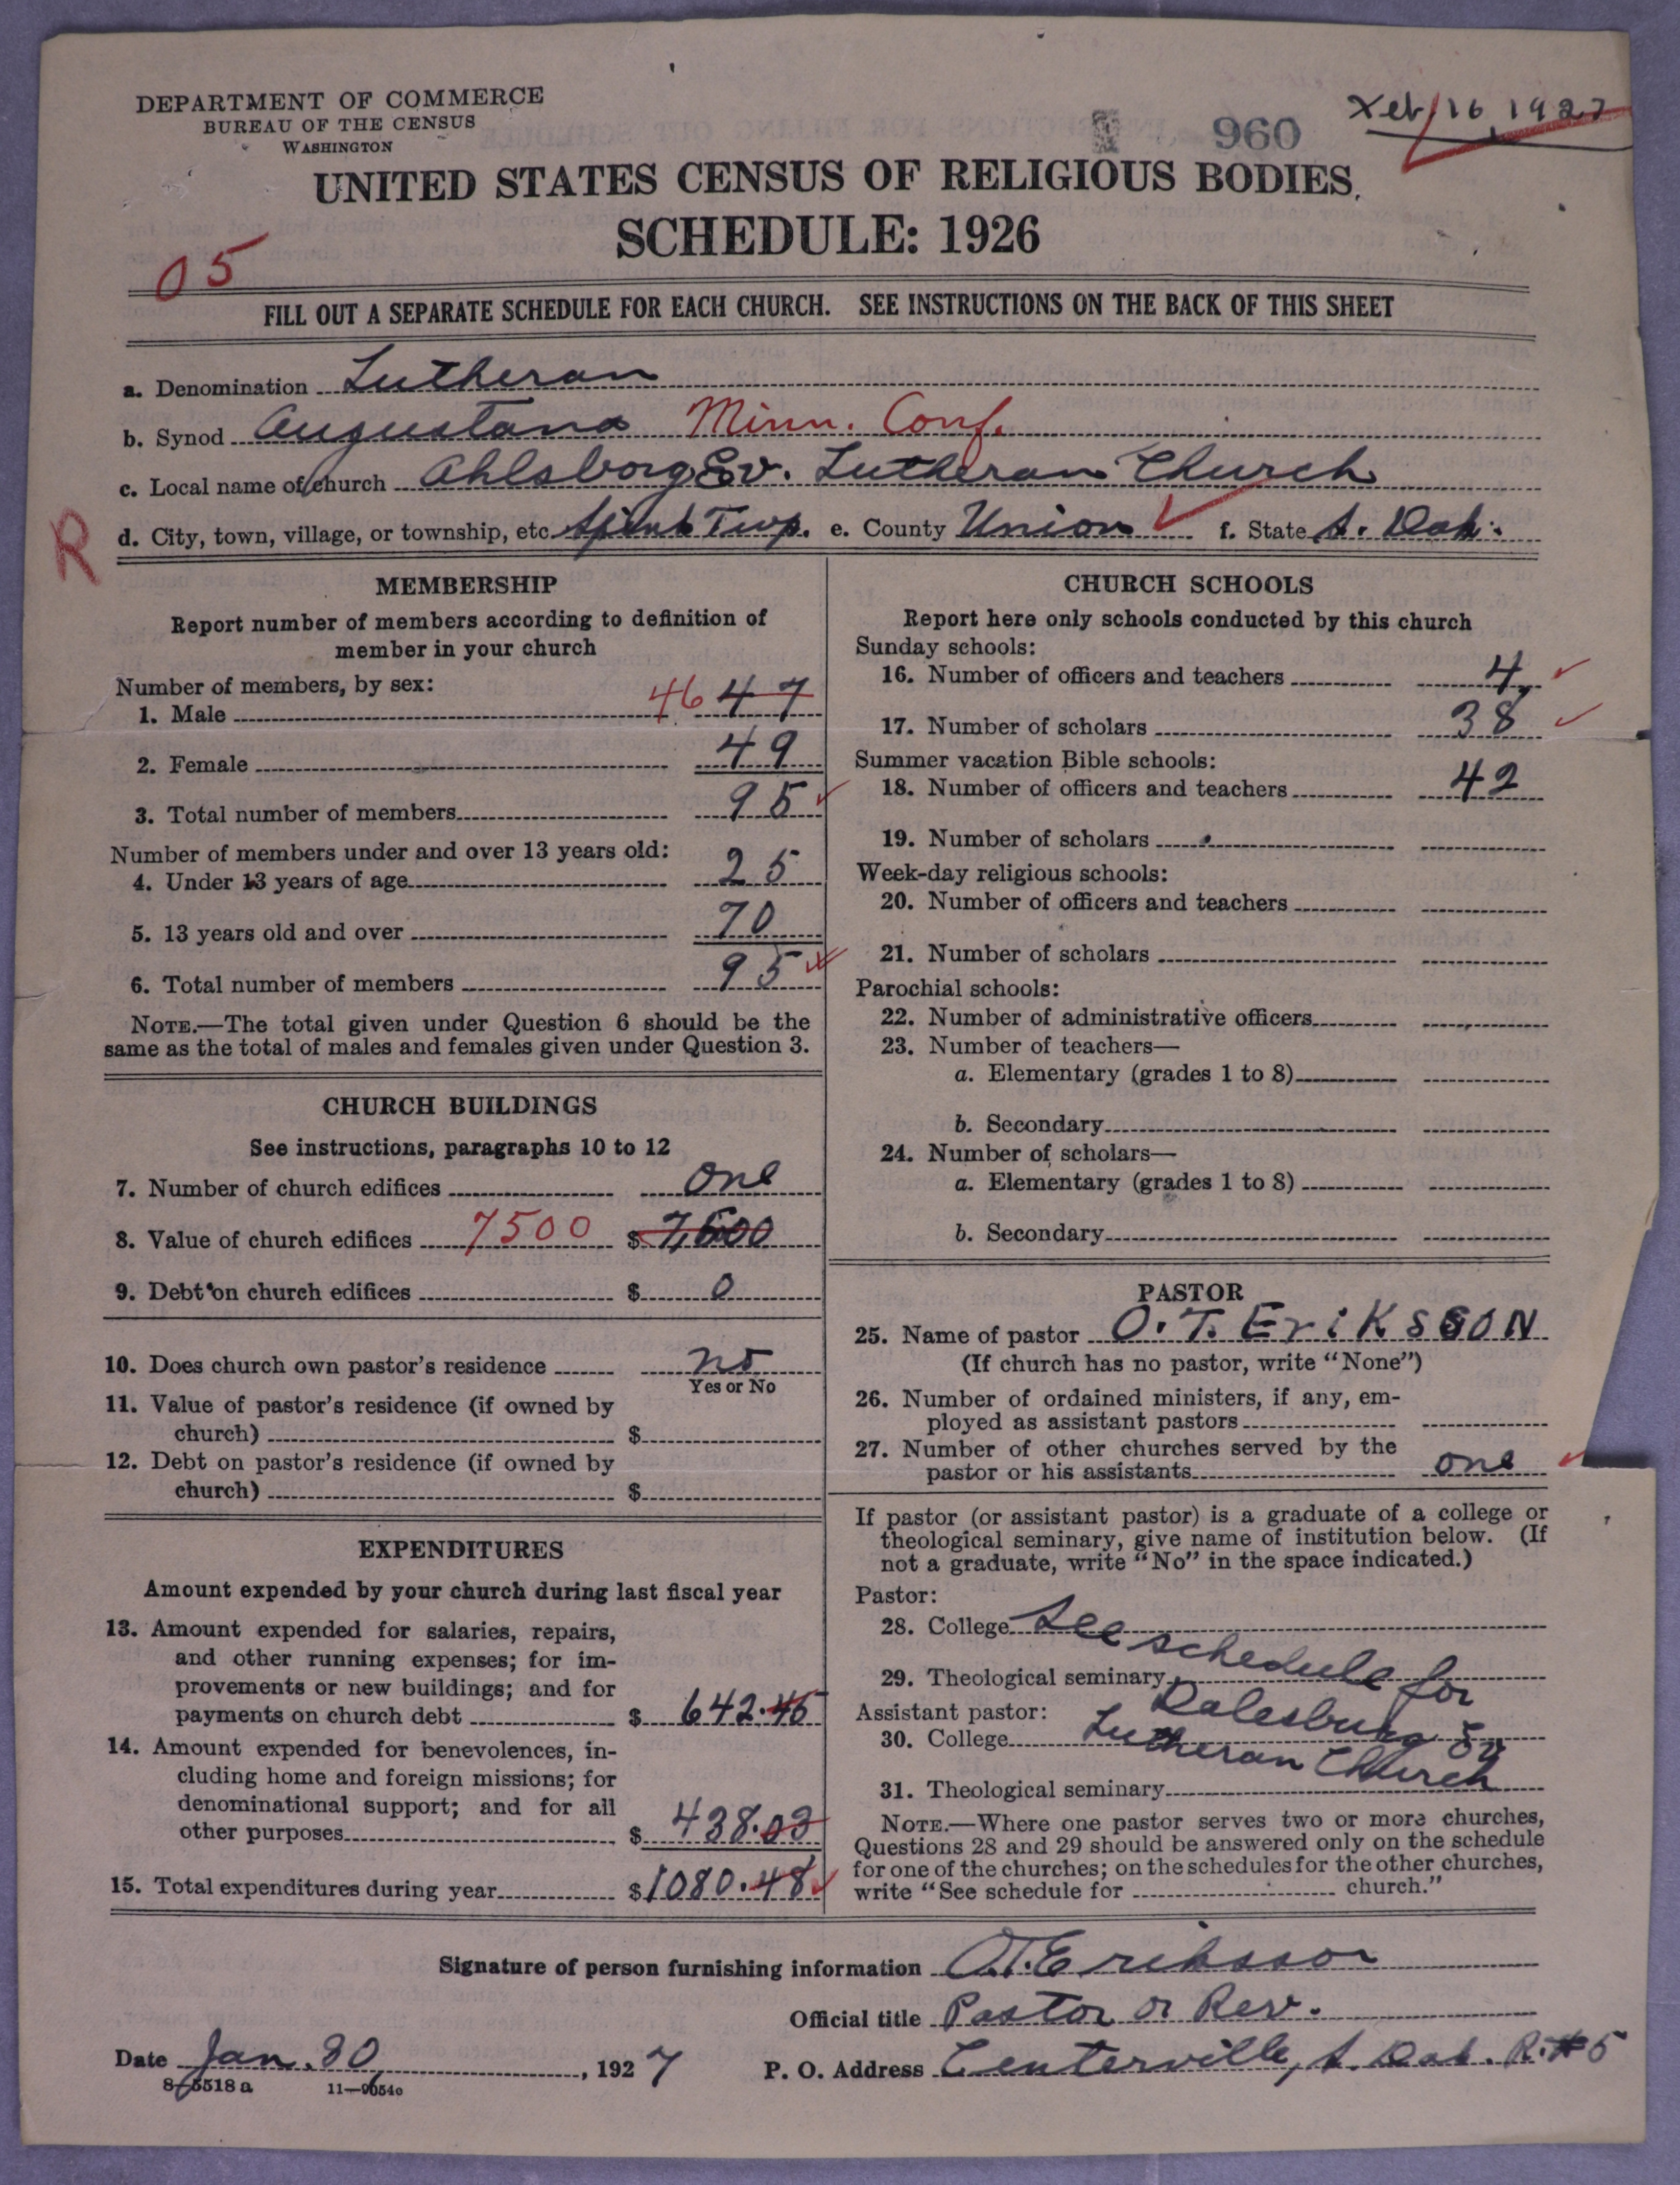 DEPARTMENT OF COMMERCE
BUREAU OF THE CENSUS
WASHINGTON
960
Feb 16, 1927
UNITED STATES CENSUS OF RELIGIOUS BODIES.
SCHEDULE: 1926
05
FILL OUT A SEPARATE SCHEDULE FOR EACH CHURCH. SEE INSTRUCTIONS ON THE BACK OF THIS SHEET
a. Denomination Lutheran
b. Synod Augustana Minn. Conf.
c. Local name of church Ahlsborg Ev. Lutheran Church
R
d. City, town, village, or township, etc Spink Twp. e. County Union f. State S. Dak.
MEMBERSHIP
Report number of members according to definition of
member in your church
Number of members, by sex:
1. Male 46 47
2. Female 49
3. Total number of members 95
Number of members under and over 13 years old:
4. Under 13 years of age 25
5. 13 years old and over 70
6. Total number of members 95
NOTE.—The total given under Question 6 should be the
same as the total of males and females given under Question 3.
CHURCH BUILDINGS
See instructions, paragraphs 10 to 12
7. Number of church edifices one
8. Value of church edifices 7500 $ 7,500
9. Debt on church edifices $ 0
10. Does church own pastor's residence no
Yes or No
11. Value of pastor's residence (if owned by
church) $
12. Debt on pastor's residence (if owned by
church) $
EXPENDITURES
Amount expended by your church during last fiscal year
13. Amount expended for salaries, repairs,
and other running expenses; for im-
provements or new buildings; and for
payments on church debt $ 642.45
14. Amount expended for benevolences, in-
cluding home and foreign missions; for
denominational support; and for all
other purposes $ 438.03
15. Total expenditures during year $1080.48
CHURCH SCHOOLS
Report here only schools conducted by this church
Sunday schools:
16. Number of officers and teachers 4
17. Number of scholars 38
Summer vacation Bible schools:
18. Number of officers and teachers 42
19. Number of scholars
Week-day religious schools:
20. Number of officers and teachers
21. Number of scholars
Parochial schools:
22. Number of administrative officers
23. Number of teachers—
a. Elementary (grades 1 to 8)
b. Secondary
24. Number of scholars—
a. Elementary (grades 1 to 8)
b. Secondary
PASTOR
25. Name of pastor O. T. ErikSSON
(If church has no pastor, write "None")
26. Number of ordained ministers, if any, em-
ployed as assistant pastors
27. Number of other churches served by the
pastor or his assistants one
If pastor (or assistant pastor) is a graduate of a college or
theological seminary, give name of institution below. (If
not a graduate, write "No" in the space indicated.)
Pastor:
28. College See schedule for
29. Theological seminary
Assistant pastor: Dalesburg Ev
30. College Lutheran Church
31. Theological seminary
NOTE.—Where one pastor serves two or more churches,
Questions 28 and 29 should be answered only on the schedule
for one of the churches; on the schedules for the other churches,
write "See schedule for church."
Signature of person furnishing information O.T. Eriksson
Official title Pastor or Rev.
Date Jan. 30, 1927 P. O. Address Centerville, S. Dak. R. #5
8-5518 a 11-9054o